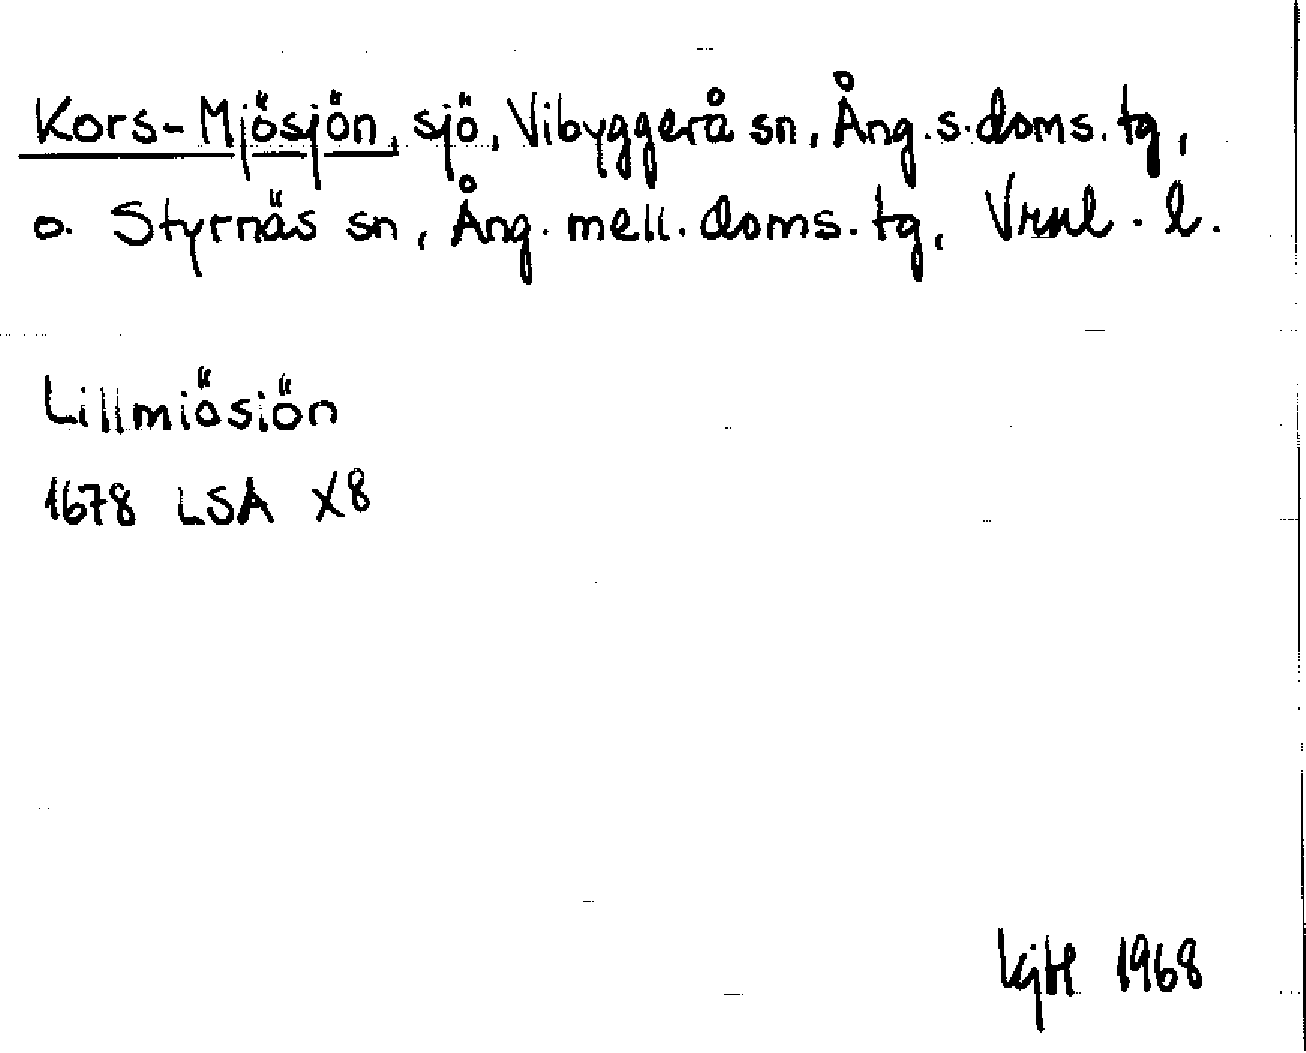 Kors-Mjösjön, sjö, Vibyggerå sn, Ång.s.doms.tg,
o. Styrnäs sn, Ång. mell. doms. tg, Vrnl. l.
Lillmiösiön
1678 LSA X8
1968